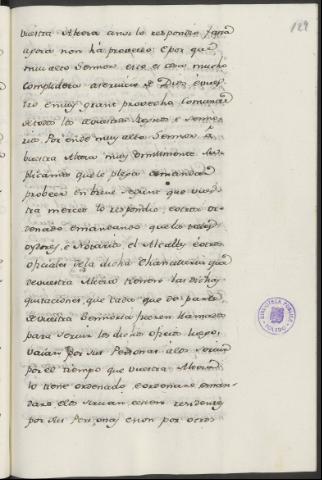 129
vuestra Alteza a nos lo respondio fasta
agora non há proveido: E por que
mui alto Sennor este es caso mucho
complidero a servicio de Dios é vues
tro é muy grant provecho comun
de todos los de vuestros Regnos é Senno
rios. Por ende muy alto Sennor á
vuestra Alteza muy omildmente su
plicamos que le plega é mandar
probeer en breve segunt que vues
tra merced lo respondió, é está or
denado é mandando que los
oydores, é Notarios, é Alcalles é otros
oficiales de la dicha Chancilleria que
de vuestra Alteza tienen las dichas
quitaciones, que cada que de parte
de vuestra Sennoria fueren llamados
para servir los dichos oficios luego
vaian por sus Personas a los servir
por el tiempo que vuestra Alteza
lo tiene ordenado é ordenare é man
dare é los sirvan, é esten residentes
por sus Personas é non por otros
BIBLIOTECA PUBLICA
TOLEDO